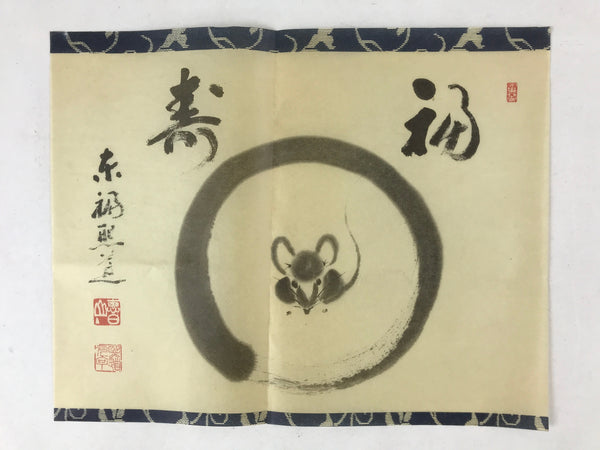 福
寿
東福煕道